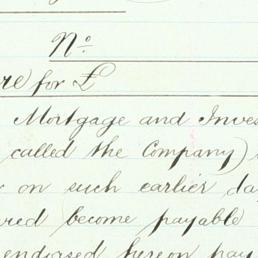 No.
for £
Mortgage and
called the Company)
on such earlier
become payable
endorsed hereon